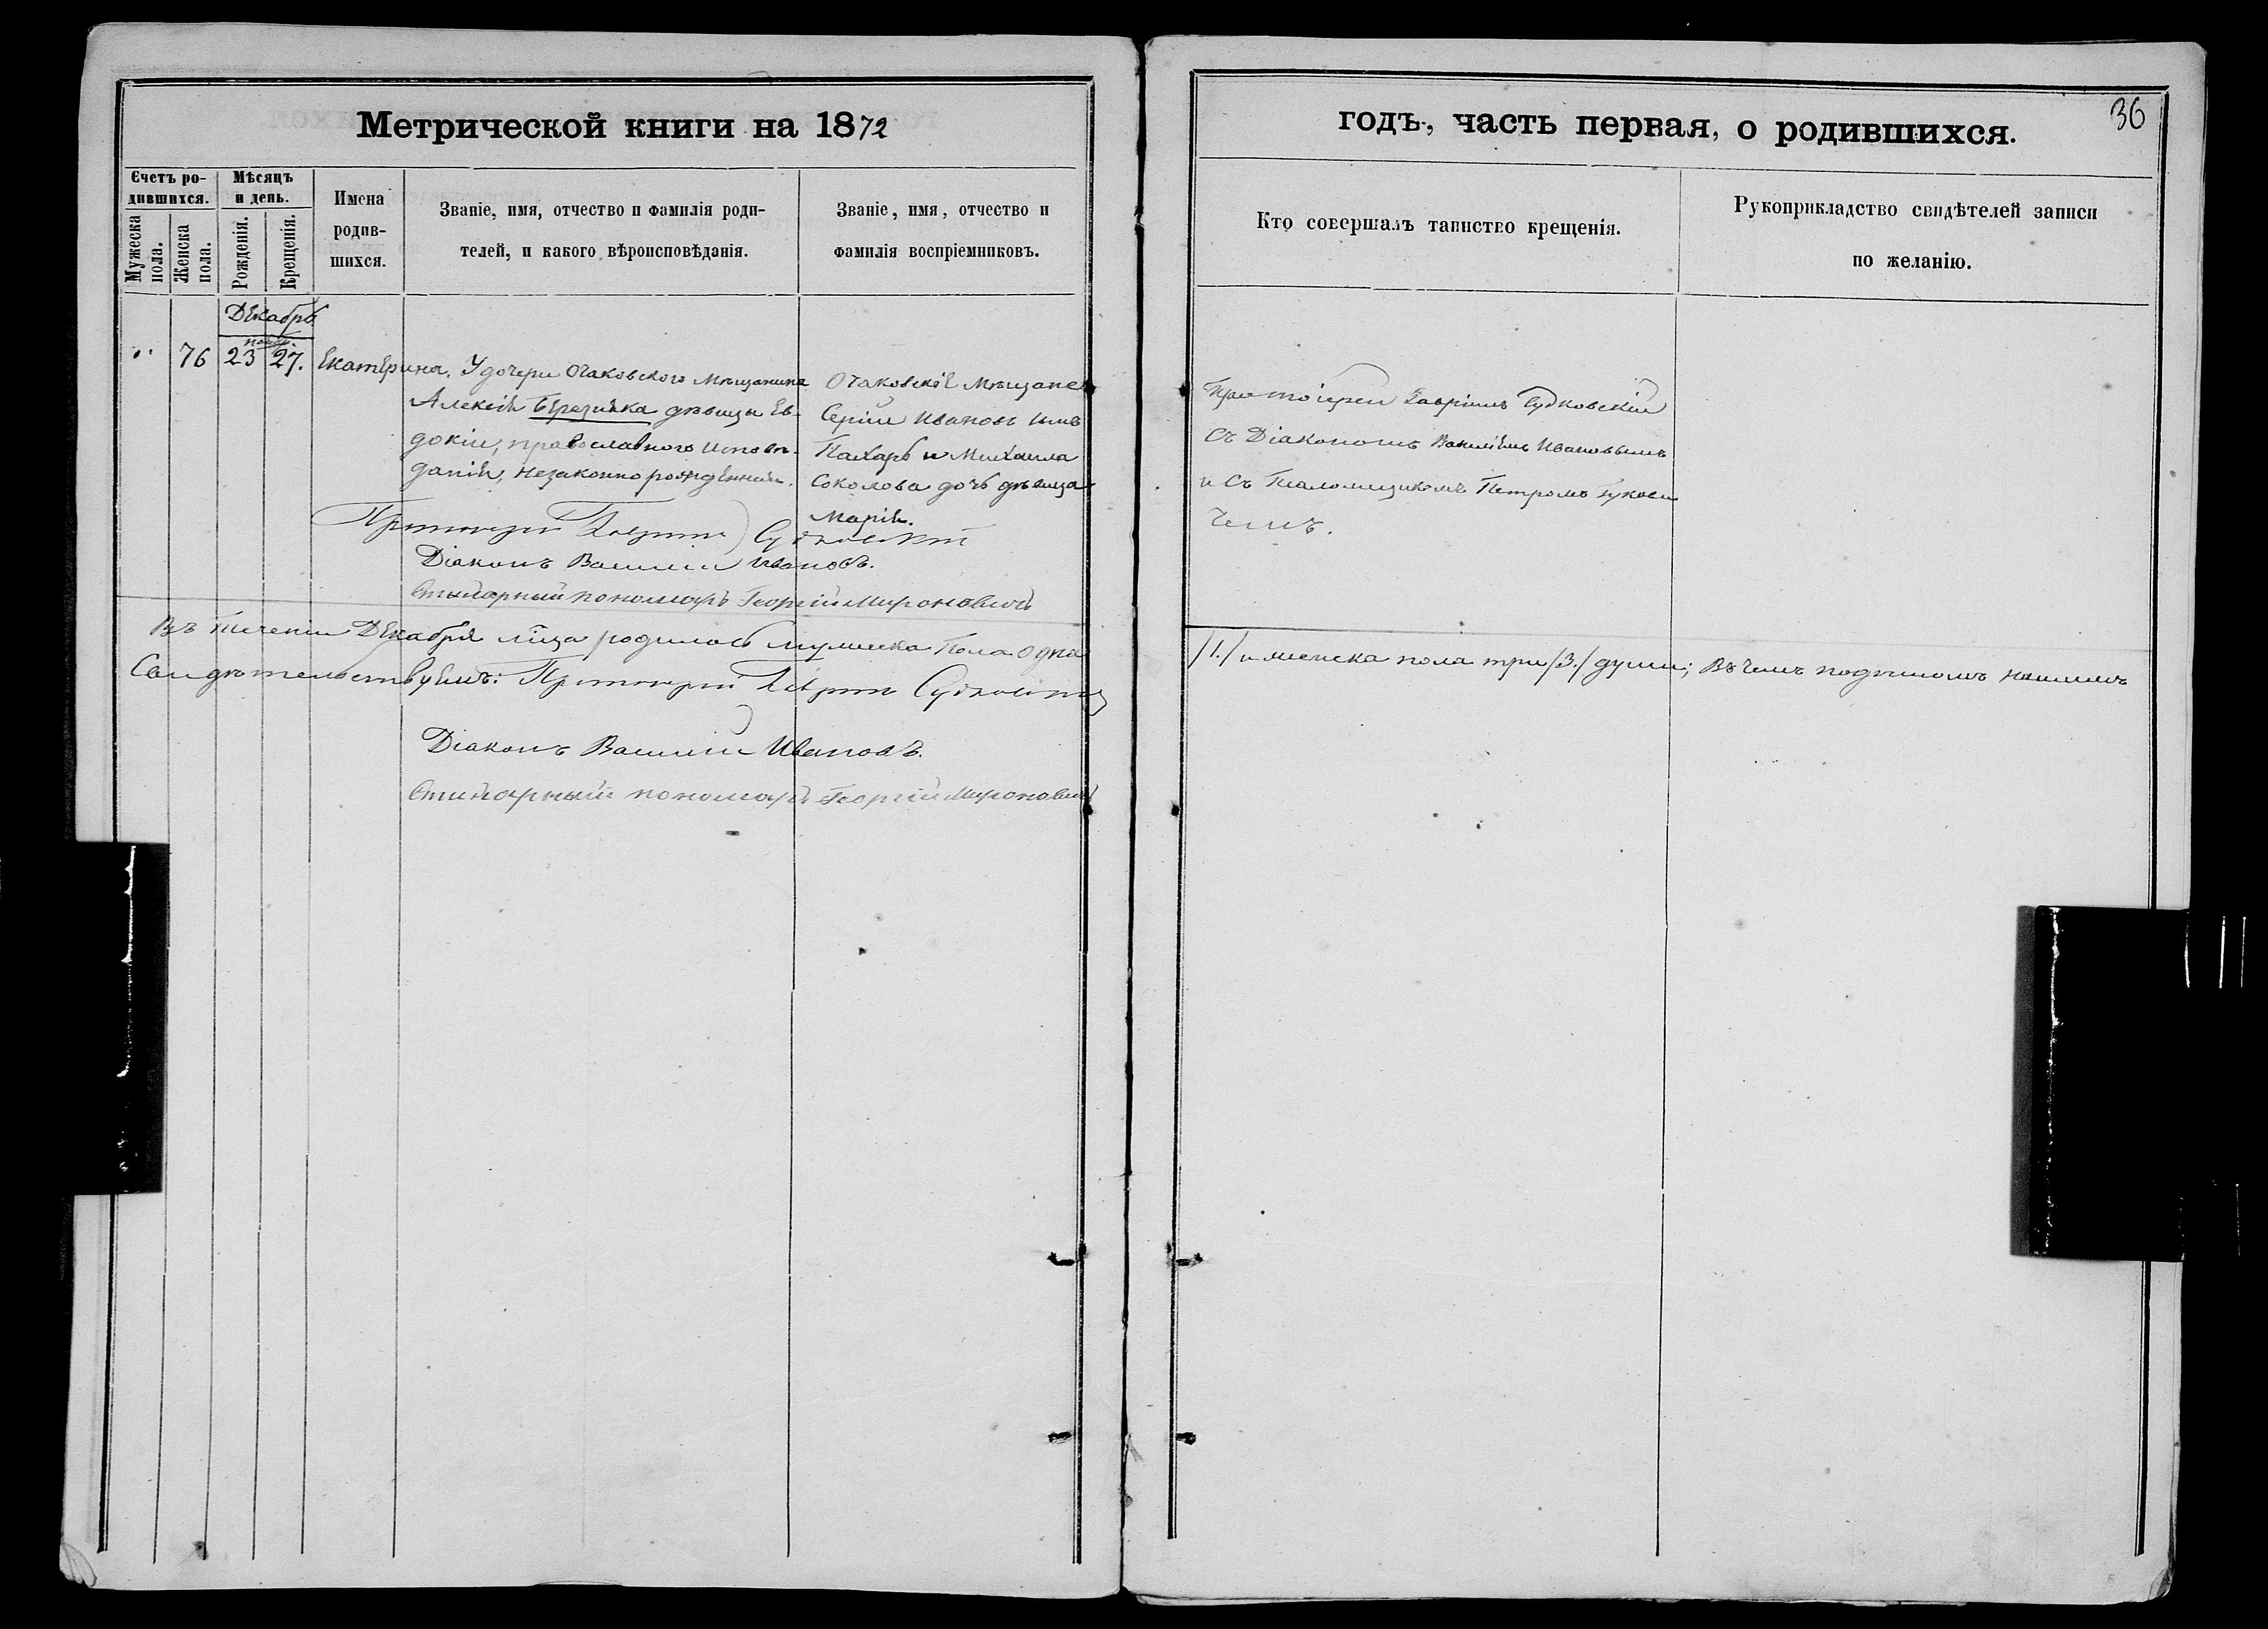 Метрической книги на 1872
годъ, часть первая, о родившихся.
36
Счетъ ро-
дившихся.
Мужеска
пола.
Женска
пола.
Мѣсяцъ
и день.
Рожденія.
Крещенія.
Имена
родив-
шихся.
Званіе, имя, отчество и фамилія роди-
телей, и какого вѣроисповѣданія.
Званіе, имя, отчество и
фамилія воспріемниковъ.
Кто совершалъ таинство крещенія.
Рукоприкладство свидѣтелей записи
по желанію.
Декабрь
76 23 27. Екатерина.
У дочери Очаковского мѣщанина
Алексѣя Березняка дѣвицы Ев-
докіи, православнаго исповѣ-
данія, незаконнорожденная.
Очаковскіе мѣщане
Сергій Ивановъ сынъ
Пахарь и Михаила
Соколова дочь дѣвица
Марія.
Протоіерей Гавріилъ Судковскій
съ Діакономъ Василіемъ Ивановымъ
и съ Псаломщикомъ Петромъ
Протоіерей Гавріилъ Судковскій
Діаконъ Василій Ивановъ.
пономарь Георгій Мироновичъ
Въ теченіи Декабря м͠ца родилось мужеска пола одна
/1./ и женска пола три /3./ души; въ чемъ подписомъ нашимъ
Свидѣтельствуемъ: Протоіерей Гавріилъ Судковскій
Діаконъ Василій Ивановъ.
пономарь Георгій Мироновичъ